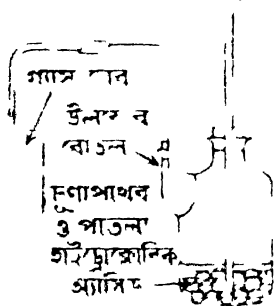 গ্যাস জার
উলফ ব
বোতল
চুনাপাথর
ও পাতলা
হাইড্রোক্লোরিক
অ্যাসিড